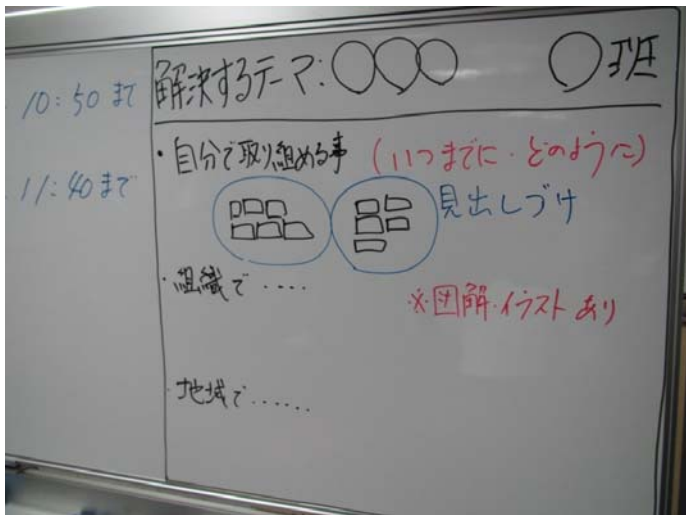 10:50まで
11:40まで
解決するテーマ:○○○ ○班
・自分で取り組める事 (いつまでに・どのように)
見出しづけ
・組織で....
※図解・イラストあり
・地域で......